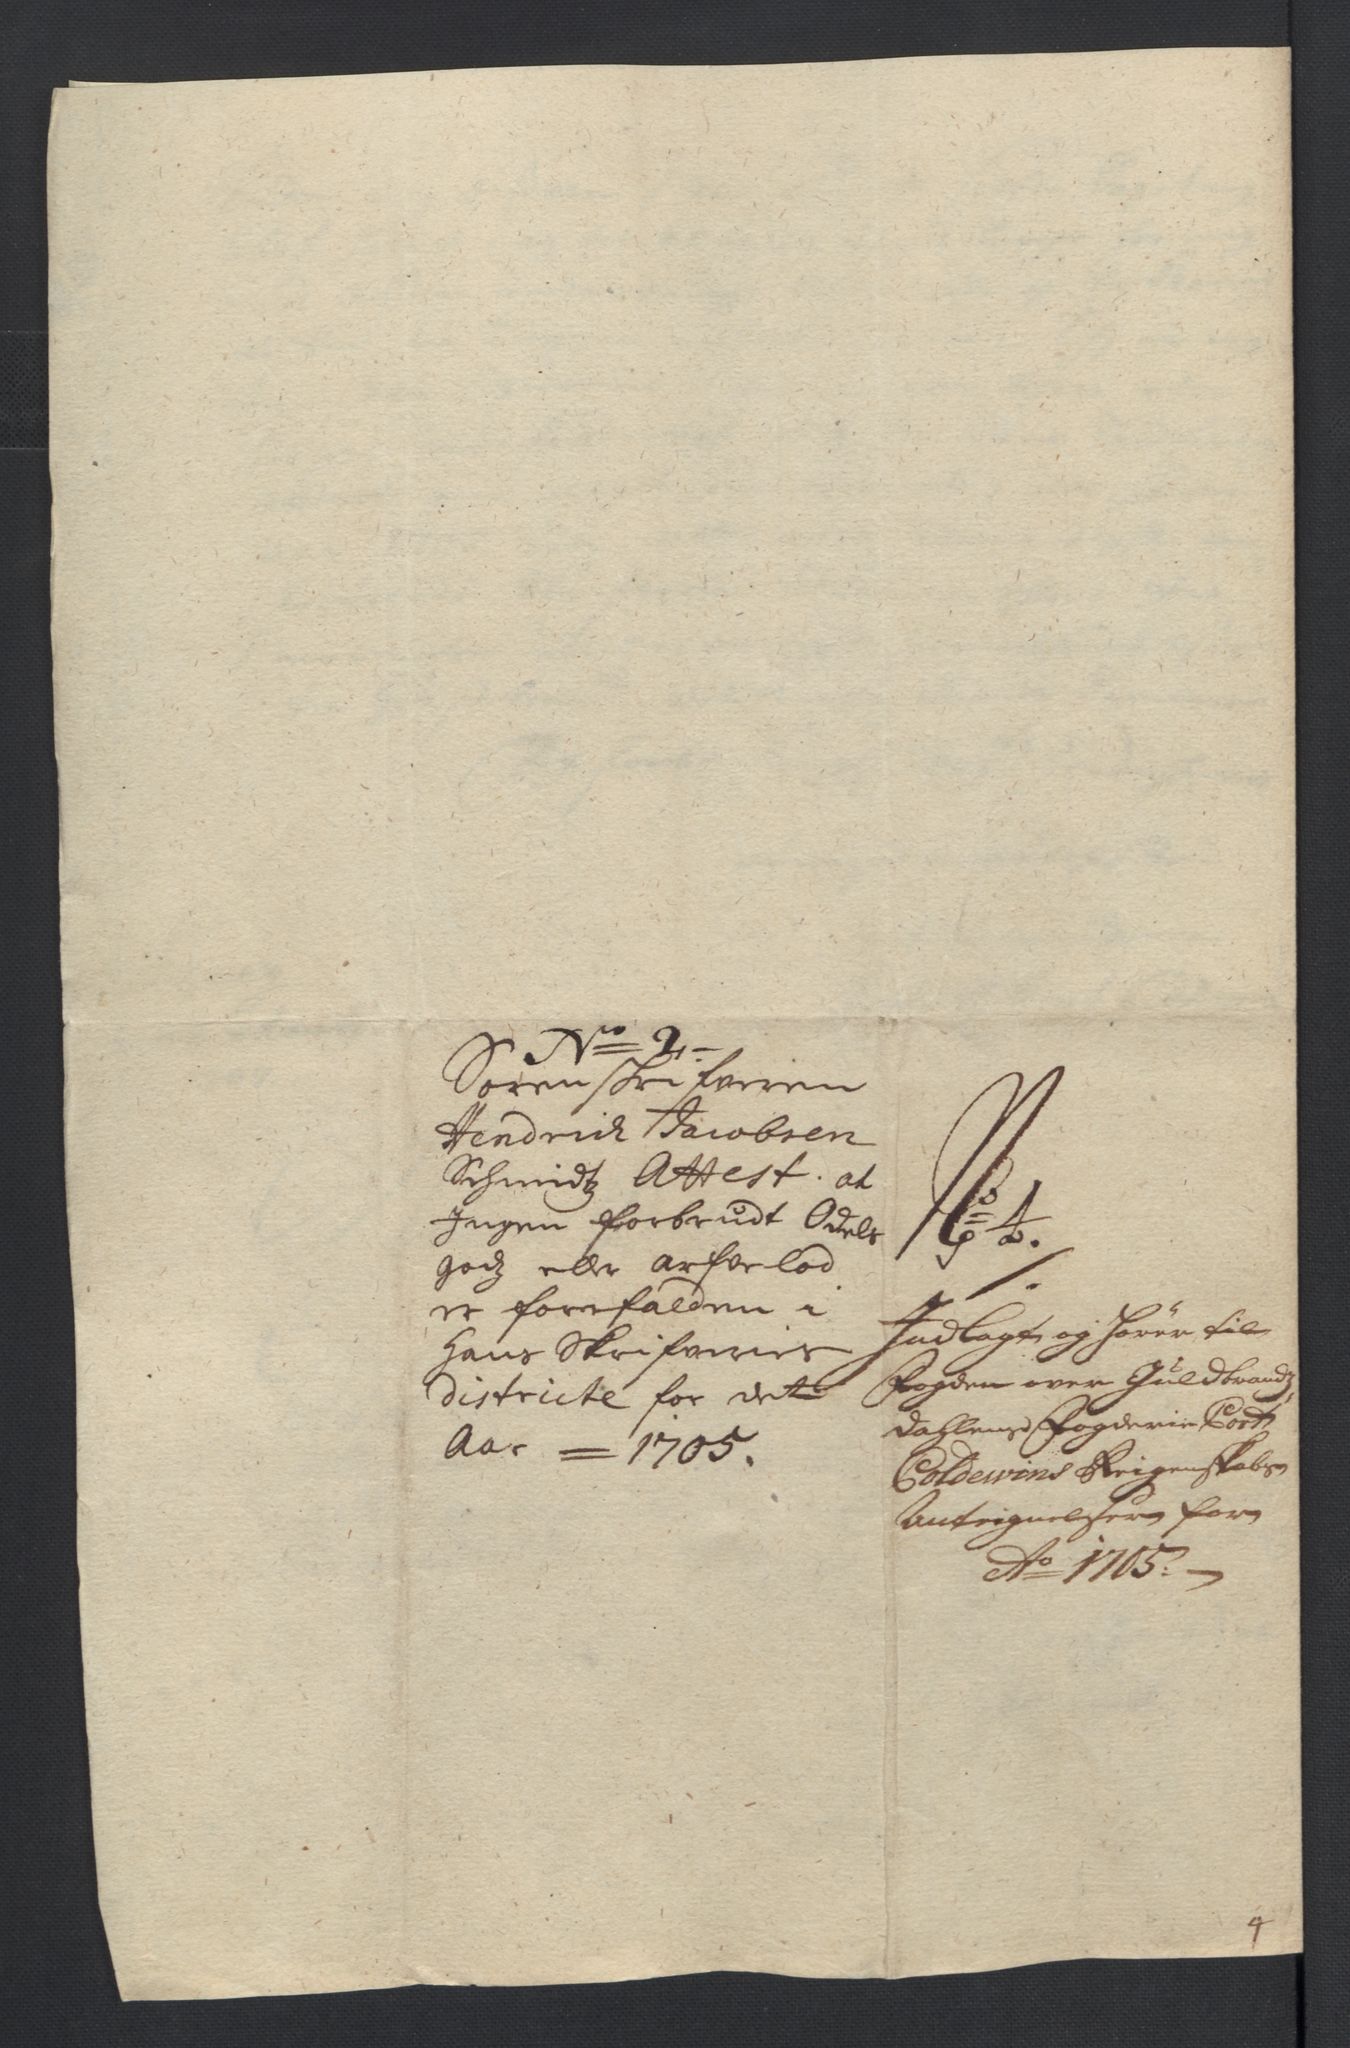 No 2.
Sorenschrifveren
Hendrich Jacobsen
Schmidtz Attest. at
Ingen forbrudt Odels
godz eller arfve lod
er forefalden i
Hans Skrifveries
Districte for det
Aar = 1705.
No 4.
Indlagt og hörer til
Fogden over Guldbrandz
dahlens Fogderie Cort
Coldewins Reigenskabs
Anteignelser for
Ao 1705.
4